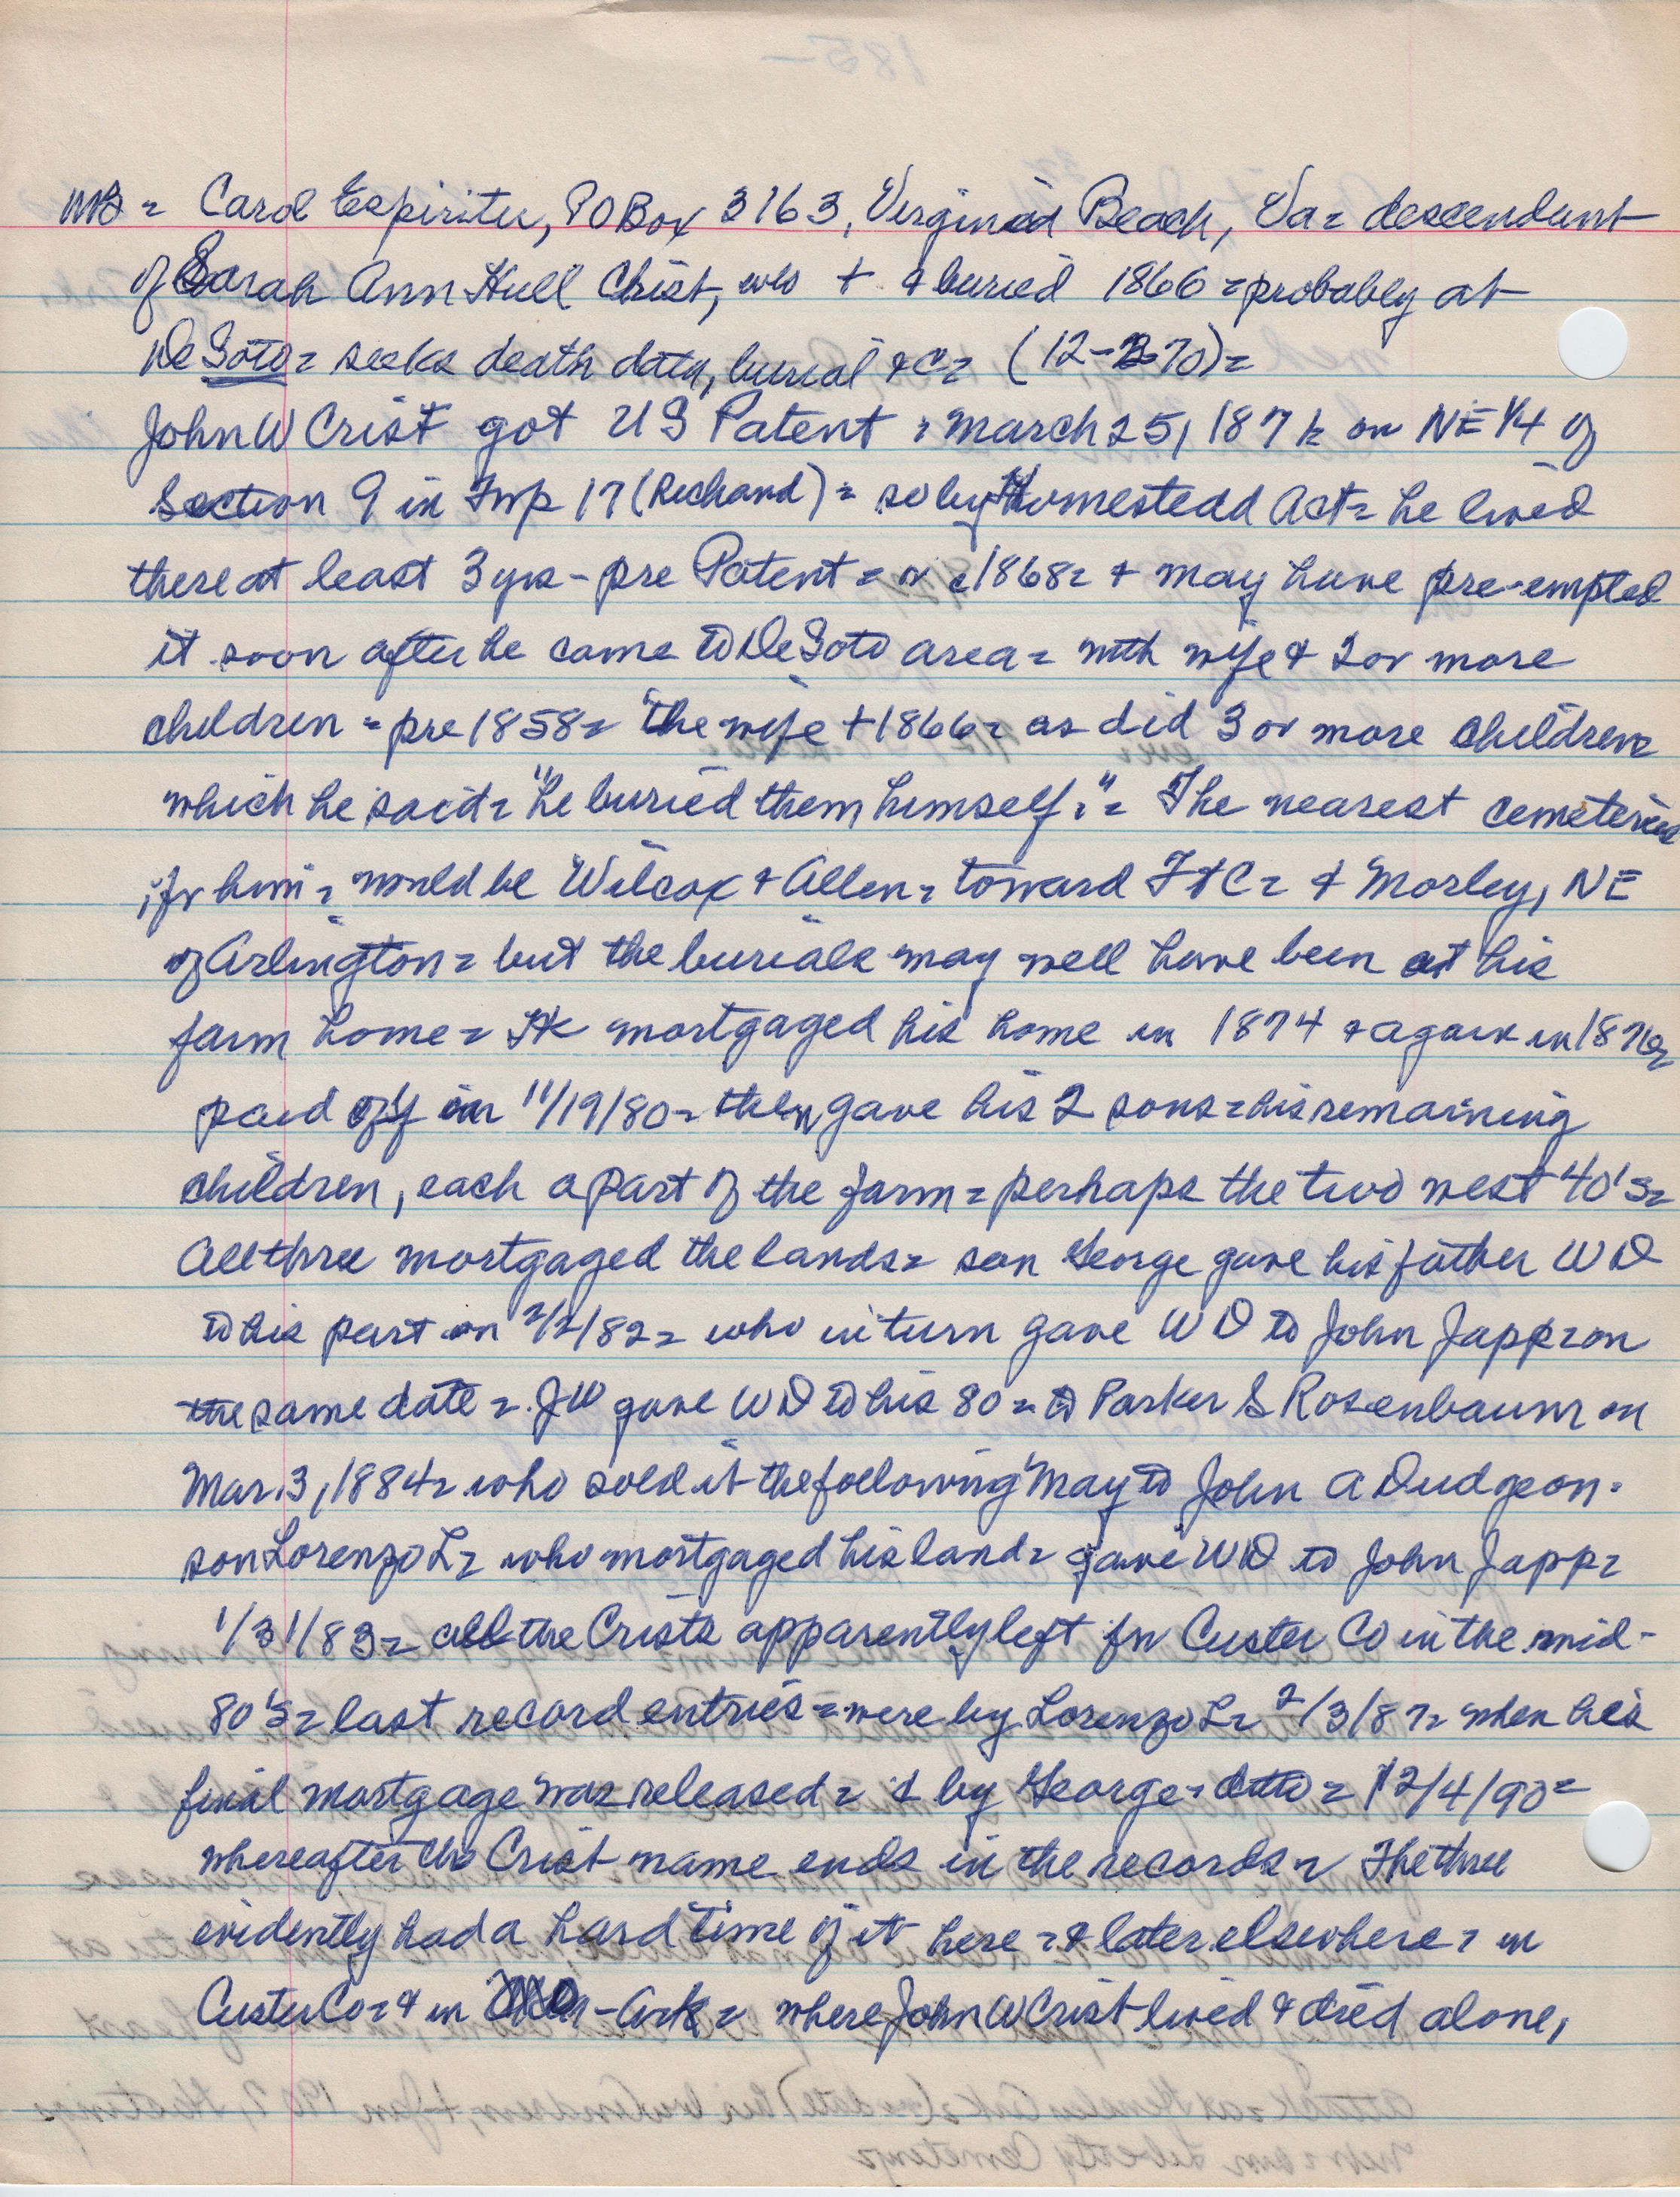 NB = Carol Espiritu, PO Box 3163, Virginia Beach, Va = descendant
of Sarah Ann Hull Christ, who + & buried 1866 = probably at
DeSoto = seeks death data, burial &c = (12-2-70) =
John W Crist got US Patent = March 25, 1871 = on NE 1/4 of
Section 9 in Twp 17 (Richand) = so by Homestead Act = he lived
there at least 3 yrs - pre Patent = or c1868 = & may have pre-empted
it soon after he came to DeSoto area = with wife & 2 or more
children = pre 1858 = the wife + 1866 = as did 3 or more children =
which he said = "he buried them himself." = The nearest cemeteries
for him = would be Wilcox & Allen = toward Ft C = & Morley, NE
of Arlington = but the burials may well have been at his
farm home = He mortgaged his home in 1874 & again in 1876 =
paid off in 11/19/80 = then gave his 2 sons = his remaining
children, each a part of the farm = perhaps the two west 40's =
All three mortgaged the lands = son George gave his father WD
to his part on 2/2/82 = who in turn gave WD to John Japp = on
the same date = JW gave WD to his 80 = to Parker S Rosenbaum on
Mar. 3, 1884 = who sold it the following May to John A Dudgeon =
son Lorenzo L = who mortgaged his land = gave WD to John Japp =
1/31/83 = all the Crists apparently left for Custer Co in the mid-
80's = last record entries = were by Lorenzo L = 2/3/87 = when his
final mortgage was released = & by George = ditto = 12/4/90 =
whereafter the Crist name ends in the records = The three
evidently had a hard time of it here = & later elsewhere = in
Custer Co = & in - Ark = where John W Crist lived & died alone,